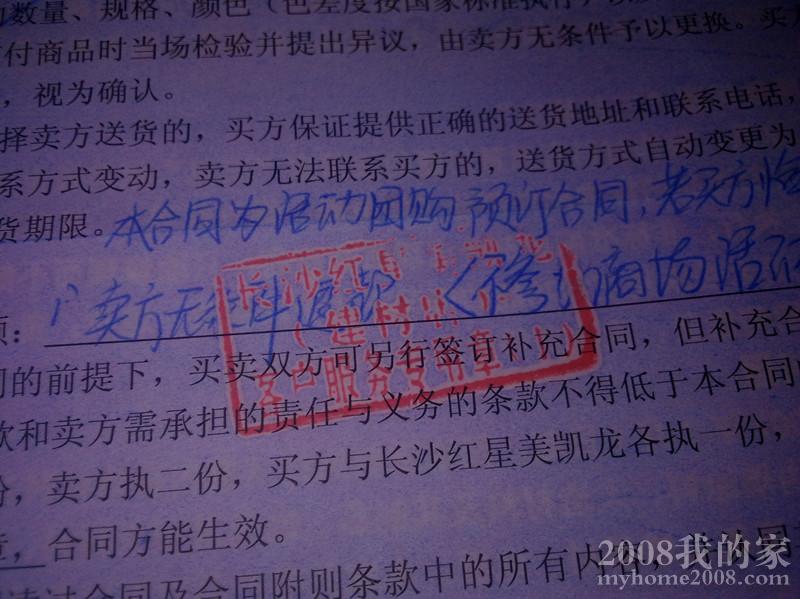 数量、规格、颜色（色差度按国家标准执行）
付商品时当场检验并提出异议，由卖方无条件予以更换。买
，视为确认。
择卖方送货的，买方保证提供正确的送货地址和联系电话，
系方式变动，卖方无法联系买方的，送货方式自动变更为
货期限。本合同为活动团购预订合同，若买方
卖方无条件退
商场活
长沙红
建材
客户服务专用章
的前提下，买卖双方可另行签订补充合同，但补充合
款和卖方需承担的责任与义务的条款不得低于本合同
份，卖方执二份，买方与长沙红星美凯龙各执一份，
章，合同方能生效。
读过合同及合同附则条款中的所有内容，
2008我的家
myhome2008.com